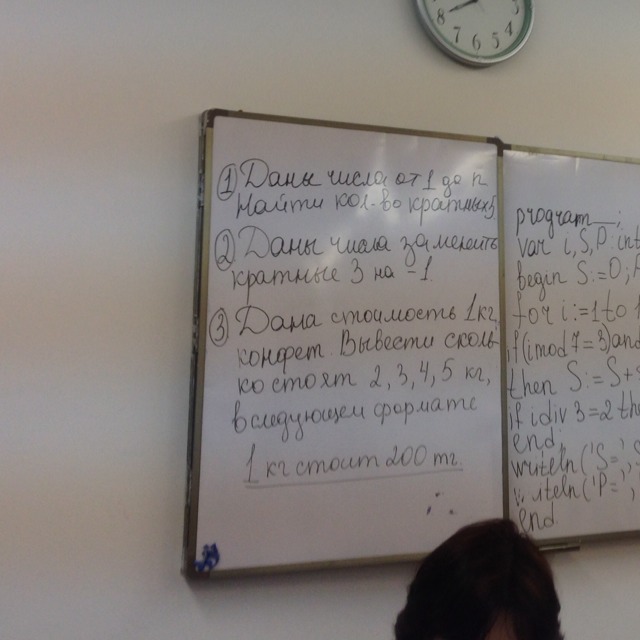 ① Даны числа от 1 до n
Найти кол-во кратных 5
② Даны числа заменить
кратные 3 на -1.
③ Дана стоимость 1 кг
конфет. Вывести сколь
ко стоят 2, 3, 4, 5 кг,
в следующем формате
1 кг стоит 200 тг.
program ;
var i, S, P: int
begin S:=0; P
for i:=1 to 1
if (i mod 7=3) and
then S:=S+
if i div 3=2 the
end;
writeln('S=',
writeln('P=',
end.
8 7 6 5 4